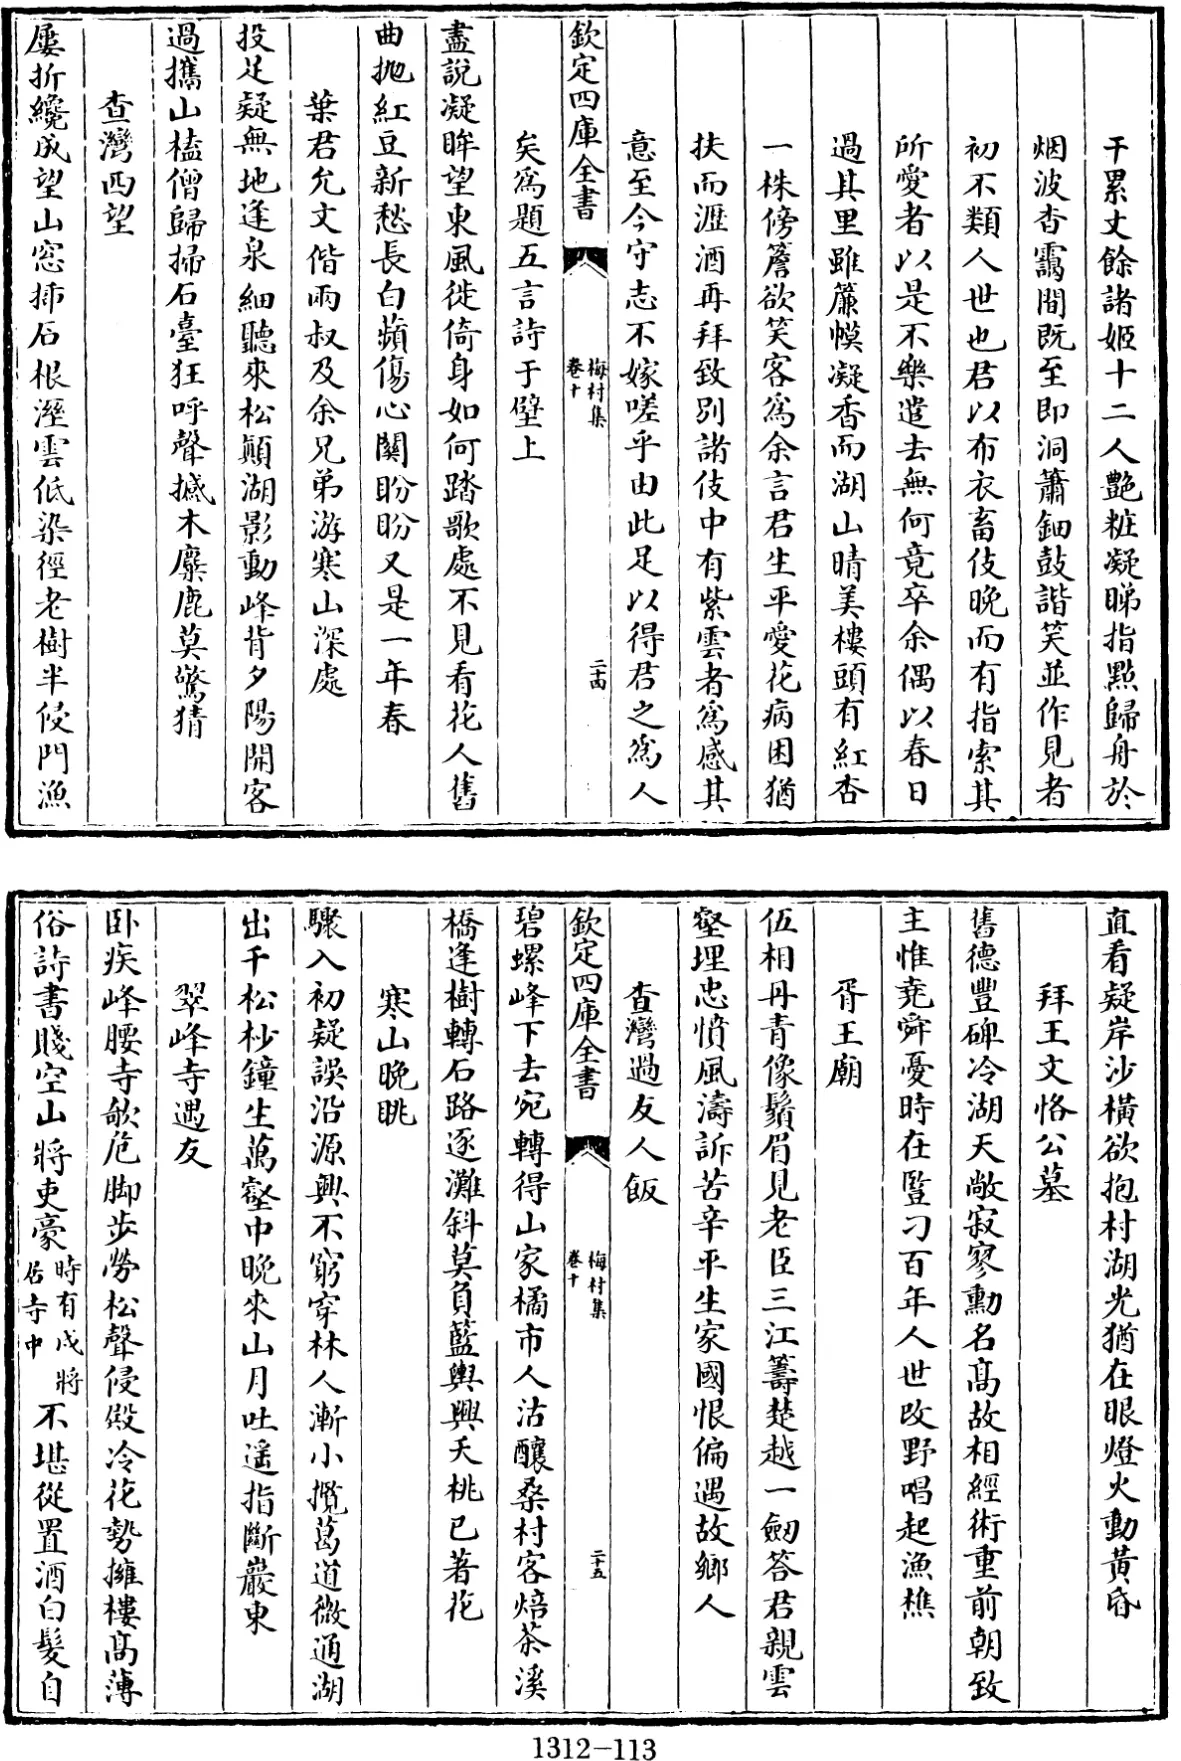 干累丈餘諸姬十二人艷粧凝睇指點歸舟於
烟波杳靄間既至即洞簫鈿鼓諧笑並作見者
初不類人世也君以布衣畜伎晚而有指索其
所愛者以是不樂遣去無何竟卒余偶以春日
過其里雖簾幙凝香而湖山晴美樓頭有紅杏
一株傍簷欲笑客為余言君生平愛花病困猶
扶而瀝酒再拜致別諸伎中有紫雲者為感其
意至今守志不嫁嗟乎由此足以得君之為人
欽定四庫全書
梅村集
卷十
二十四
矣為題五言詩于壁上
盡說凝眸望東風徙倚身如何踏歌處不見看花人舊
曲抛紅豆新愁長白蘋傷心關盼盼又是一年春
葉君允文偕兩叔及余兄弟游寒山深處
投足疑無地逢泉細聽來松顛湖影動峰背夕陽開客
過攜山榼僧歸掃石臺狂呼聲撼木麋鹿莫驚猜
查灣西望
屢折纔成望山窓揷石根溼雲低染徑老樹半侵門漁
直看疑岸沙橫欲抱村湖光猶在眼燈火動黃昏
拜王文恪公墓
舊德豐碑冷湖天敞寂寥勳名高故相經術重前朝致
主惟堯舜憂時在豎刁百年人世改野唱起漁樵
胥王廟
伍相丹青像鬚眉見老臣三江籌楚越一劒答君親雲
壑埋忠憤風濤訴苦辛平生家國恨偏遇故鄉人
查灣過友人飯
欽定四庫全書
梅村集
卷十
二十五
碧螺峰下去宛轉得山家橘市人沽釀桑村客焙茶溪
橋逢樹轉石路逐灘斜莫負藍輿興夭桃已著花
寒山晚眺
驟入初疑誤沿源興不窮穿林人漸小攬葛道微通湖
出千松杪鐘生萬壑中晚來山月吐遥指斷巖東
翠峰寺遇友
卧疾峰腰寺欹危脚步勞松聲侵殿冷花勢擁樓高薄
俗詩書賤空山將吏豪時有戍將居寺中不堪從置酒白髮自
1312-113